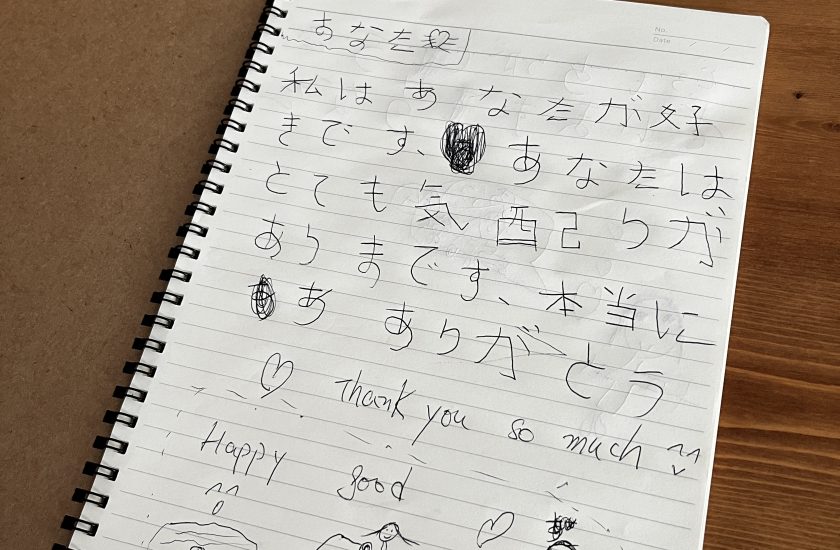 あなた♡
No.
Date
私は あなたが好
きです、 あなたは
とても気配りが
ありまです、本当に
あ ありがとう
♡ Thank you so much
Happy good